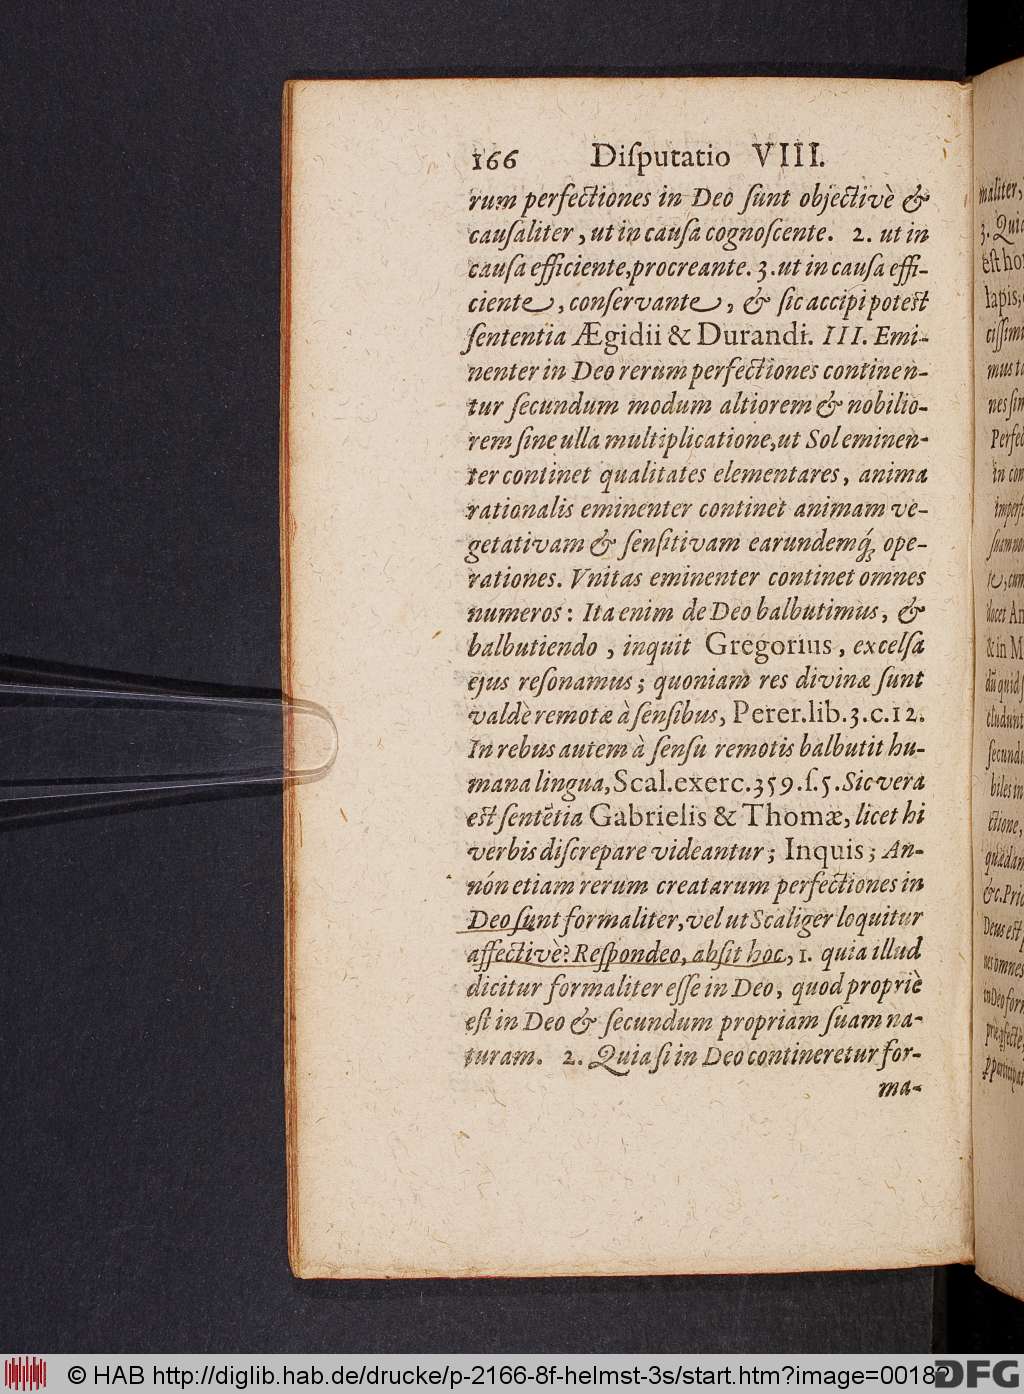 166 Diſputatio VIII.
rum perfectiones in Deo ſunt objectivè &
cauſaliter, ut in cauſa cognoſcente. 2. ut in
cauſa efficiente, procreante. 3. ut in cauſa effi-
ciente, conſervante, & ſic accipi poteſt
ſententia Ægidii & Durandi. III. Emi-
nenter in Deo rerum perfectiones continen-
tur ſecundum modum altiorem & nobilio-
rem ſine ulla multiplicatione, ut Sol eminen-
ter continet qualitates elementares, anima
rationalis eminenter continet animam ve-
getativam & ſenſitivam earundemq́; ope-
rationes. Vnitas eminenter continet omnes
numeros: Ita enim de Deo balbutimus, &
balbutiendo, inquit Gregorius, excelſa
ejus reſonamus; quoniam res divinæ ſunt
valdè remotæ à ſenſibus, Perer. lib. 3. c. 12.
In rebus autem à ſenſu remotis balbutit hu-
mana lingua, Scal. exerc. 359. ſ. 5. Sic vera
eſt ſentẽtia Gabrielis & Thomæ, licet hi
verbis diſcrepare videantur; Inquis; An-
nón etiam rerum creatarum perfectiones in
Deo ſunt formaliter, vel ut Scaliger loquitur
affectivè? Reſpondeo, absit hoc, 1. quia illud
dicitur formaliter eſſe in Deo, quod propriè
eſt in Deo & ſecundum propriam ſuam na-
turam. 2. Quia ſi in Deo contineretur for-
ma-
maliter,
3. Quia
eſt ho
lapis,
ciſſim
mus t
nes ſin
Perfe
in con
imperf
ſuam na
docet An
& in M
cludunt
ſecund
biles in
ctione,
quædam
&c. Pri
Deus eſt
nes omnes
in Deo for
© HAB http://diglib.hab.de/drucke/p-2166-8f-helmst-3s/start.htm?image=00182
DFG